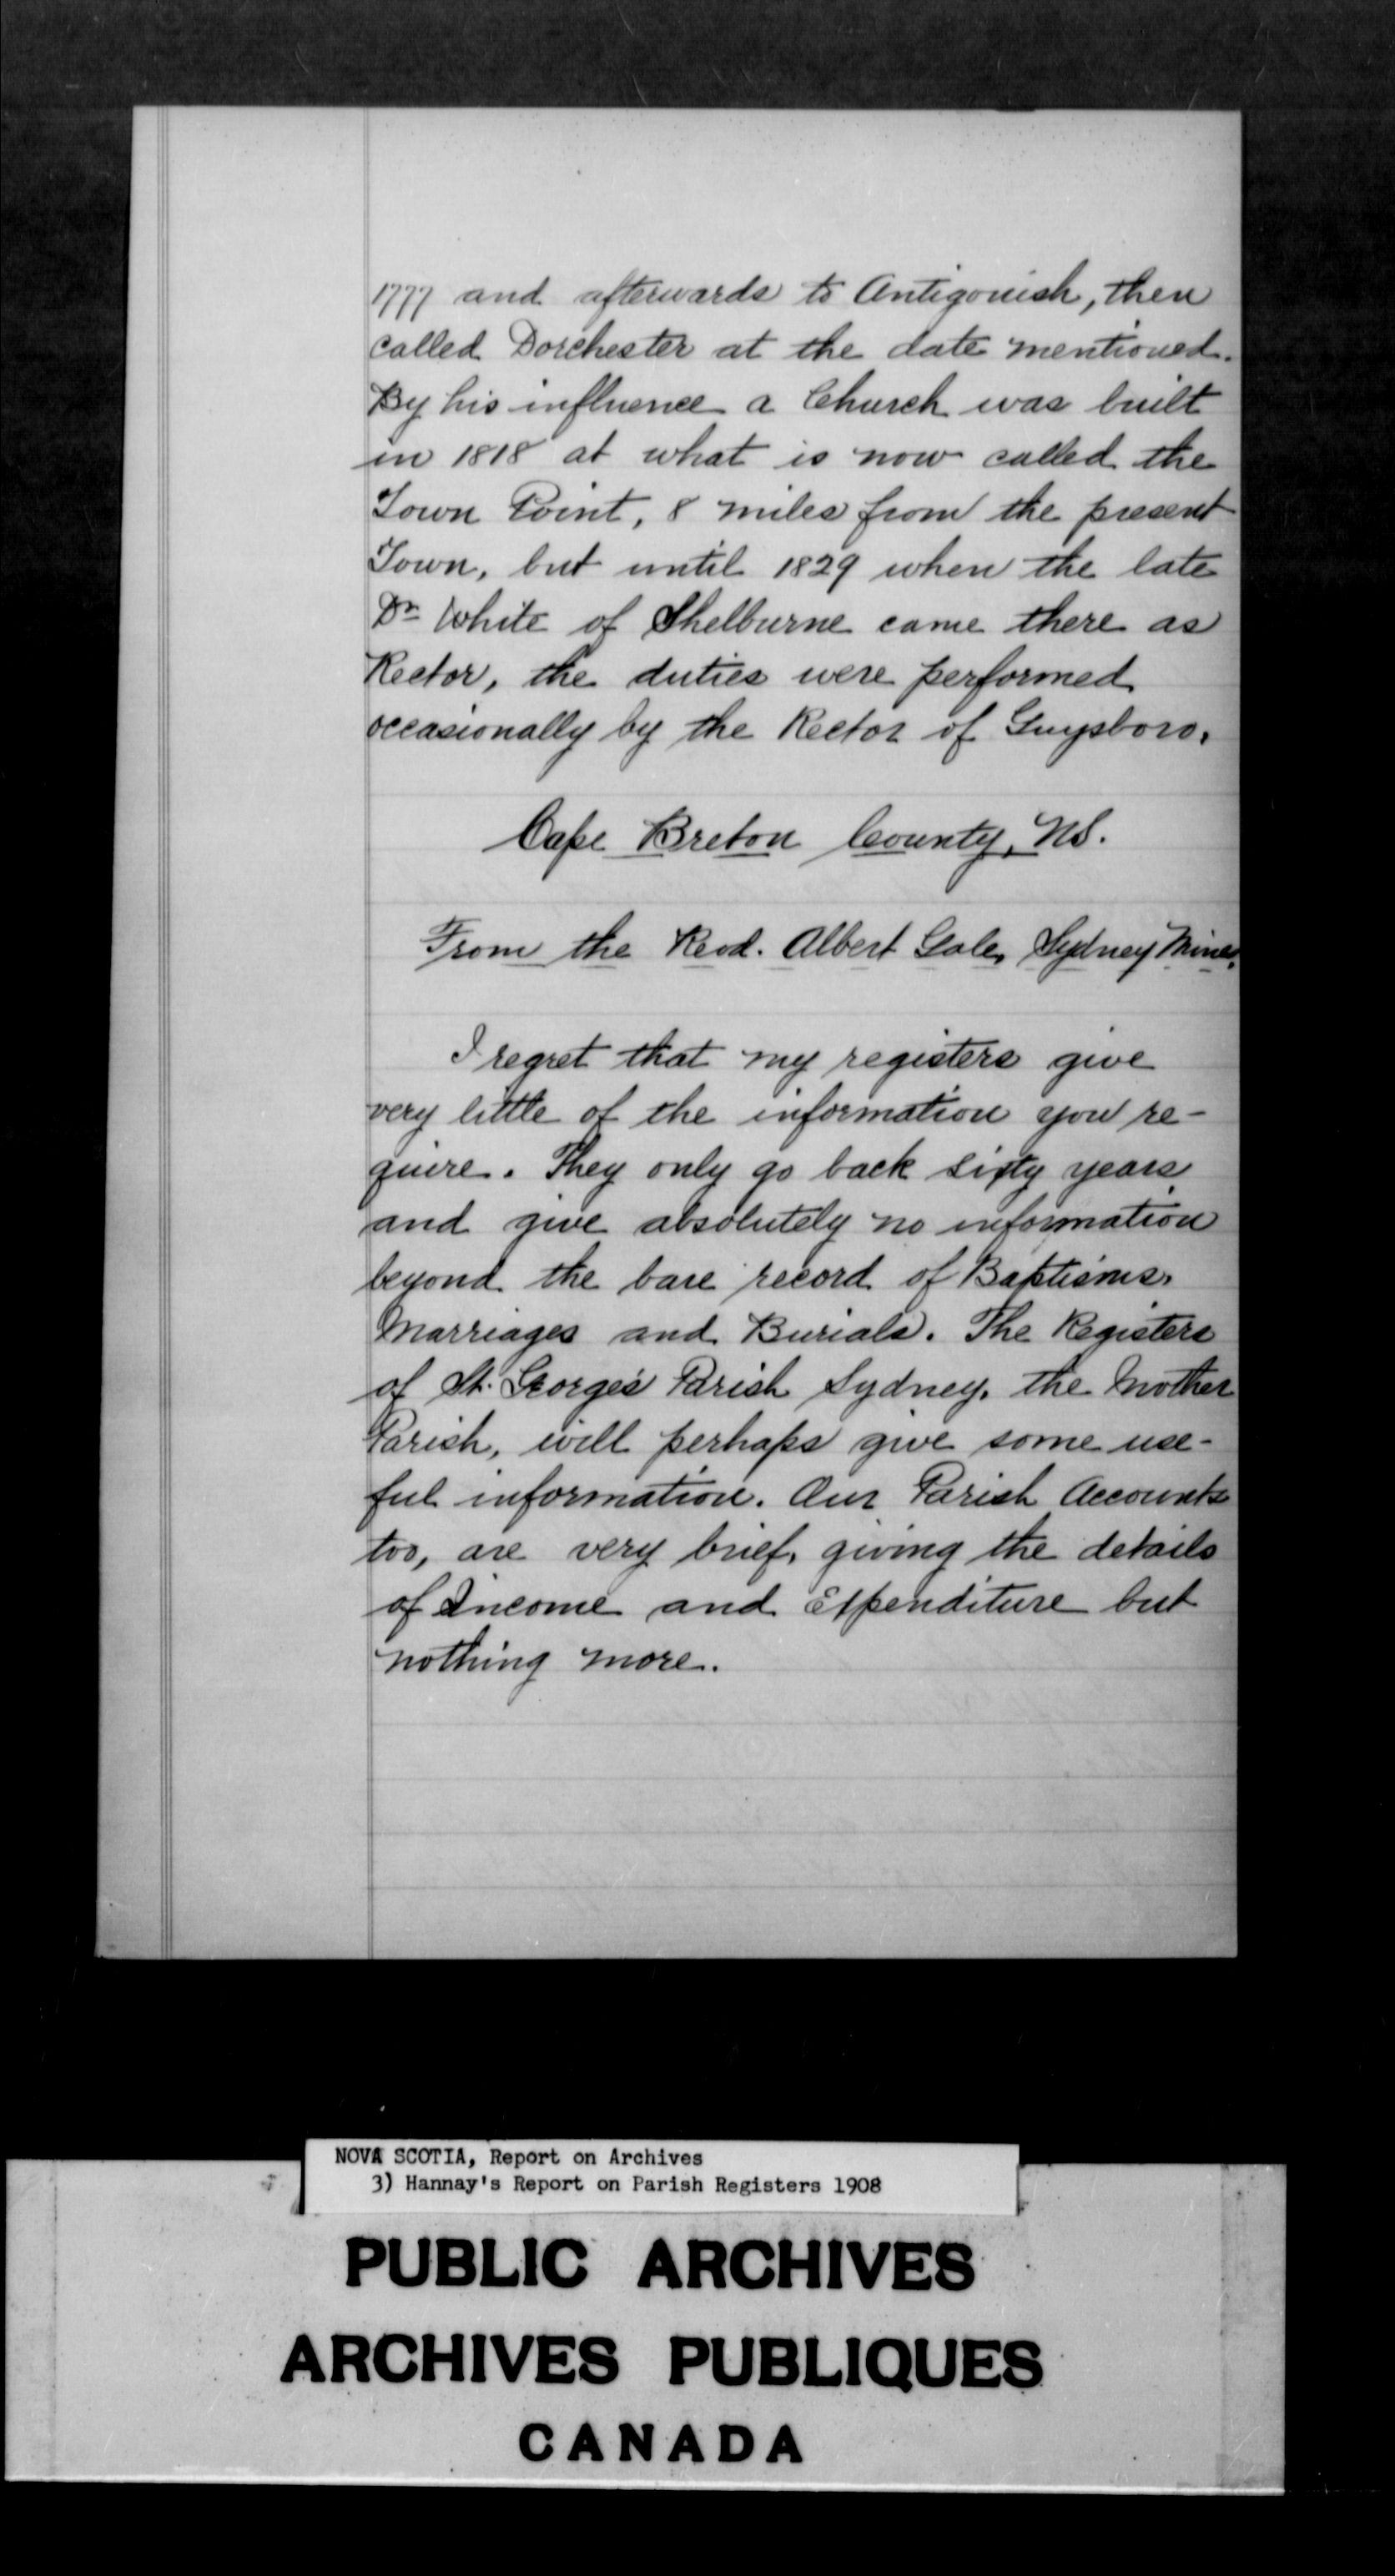 1777 and afterwards to Antigonish, then
called Dorchester at the date mentioned.
By his influence a Church was built
in 1818 at what is now called the
Town Point, 8 miles from the present
Town, but until 1829 when the late
Dr White of Shelburne came there as
Rector, the duties were performed
occasionally by the Rector of Guysboro.
Cape Breton County, NS.
From the Revd. Albert Gale, Sydney Mines.
I regret that my registers give
very little of the information you re-
quire. They only go back sixty years
and give absolutely no information
beyond the bare record of Baptisms,
Marriages and Burials. The Registers
of St. George's Parish Sydney, the Mother
Parish, will perhaps give some use-
ful information. Our Parish Accounts
too, are very brief, giving the details
of Income and Expenditure but
nothing more.
NOVA SCOTIA, Report on Archives
3) Hannay's Report on Parish Registers 1908
PUBLIC ARCHIVES
ARCHIVES PUBLIQUES
CANADA